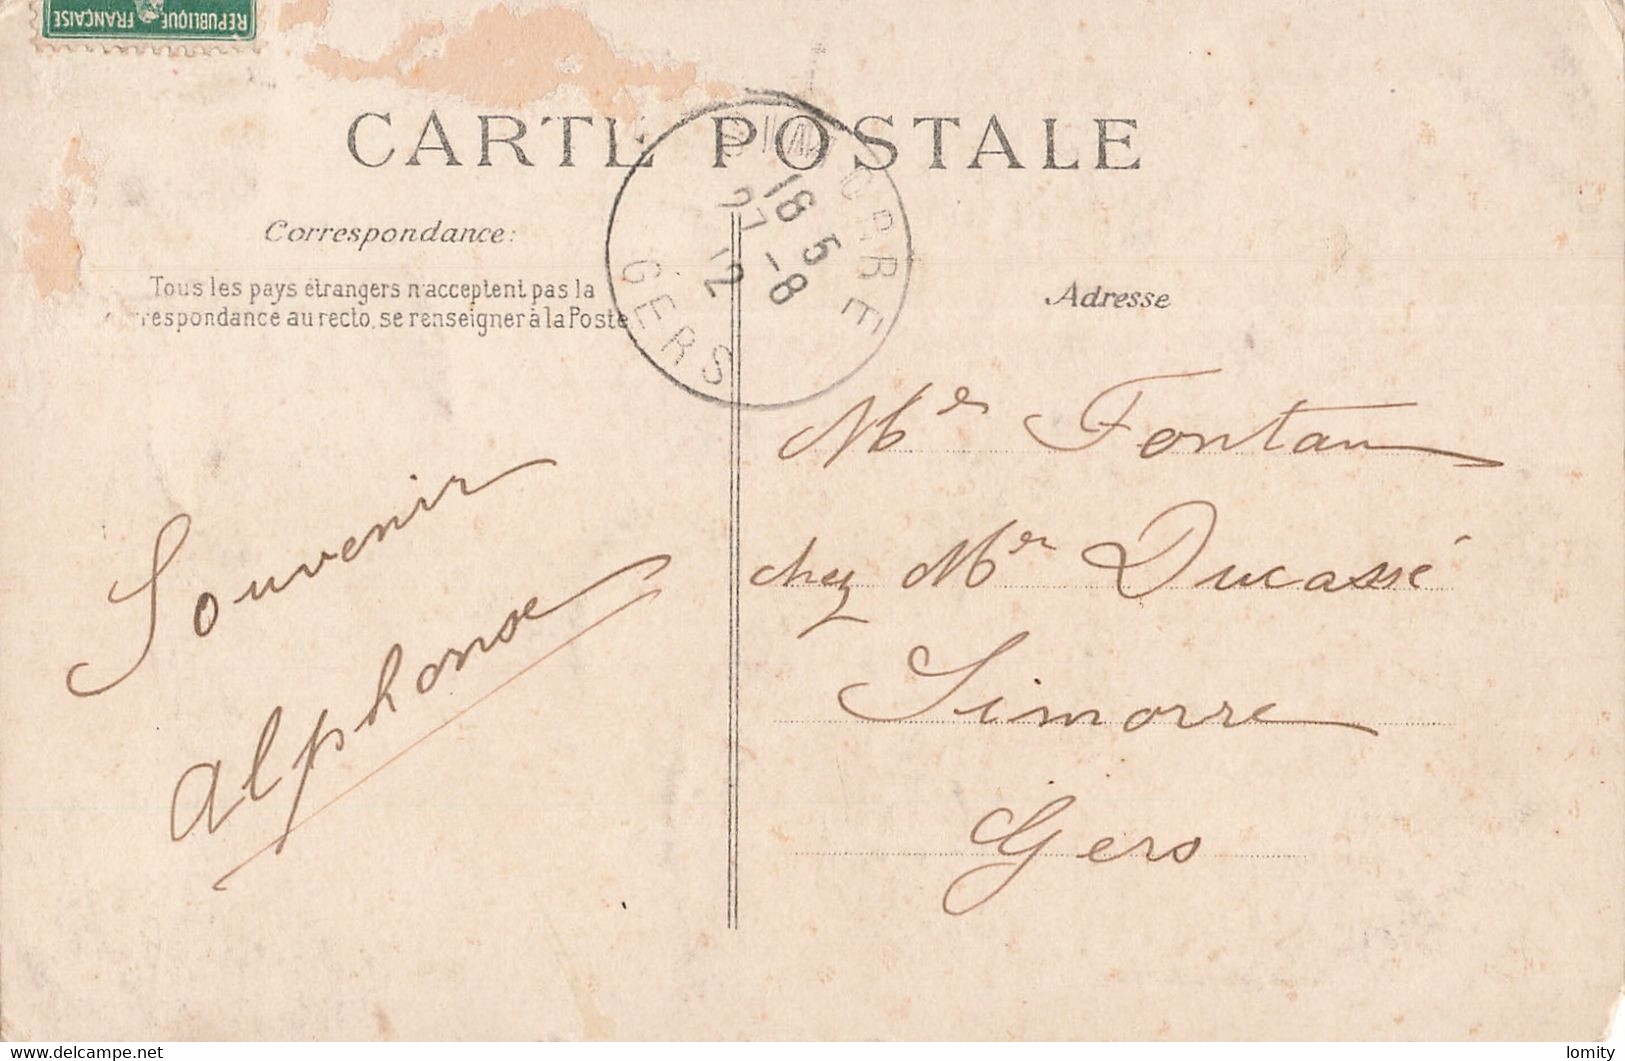 RÉPUBLIQUE FRANÇAISE
CARTE POSTALE
SIMORRE
18 5
27 -8
-12
GERS
Correspondance:
Tous les pays étrangers n'acceptent pas la
respondance au recto, se renseigner à la Poste
Adresse
Souvenir
Alphonse
Mr Fontan
chez Mr Ducassé
Simorre
Gers
delcampe.net
lomity